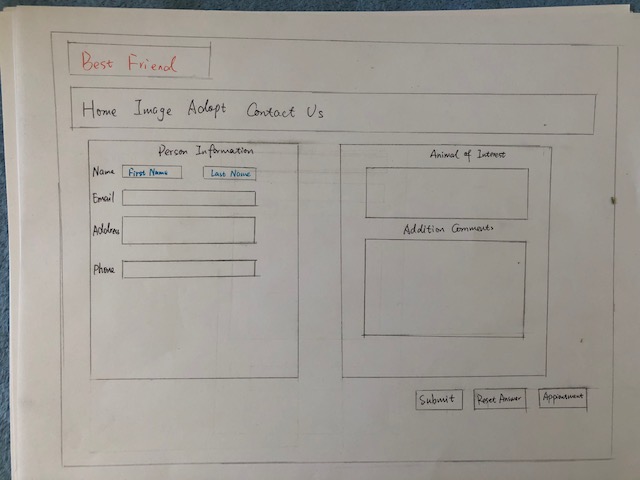 Best Friend
Home Image Adopt Contact Us
Person Information
Name First Name Last Name
Email
Address
Phone
Animal of Interest
Addition Comments
Submit Reset Answer